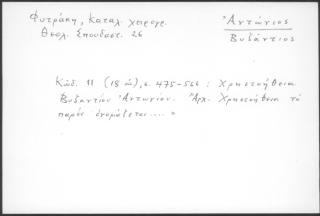 Φυτράκη, Καταλ. χειρογρ.
Θεολ. Σπουδαστ. 26
Ἀντώνιος
Βυζάντιος
Κώδ. 11 (18 αἰ), σ. 475-566 : Χρηστοήθεια
Βυζαντίου Ἀντωνίου. Ἀρχ. Χρηστοήθεια τὸ
παρὸν ὀνομάζεται.... »